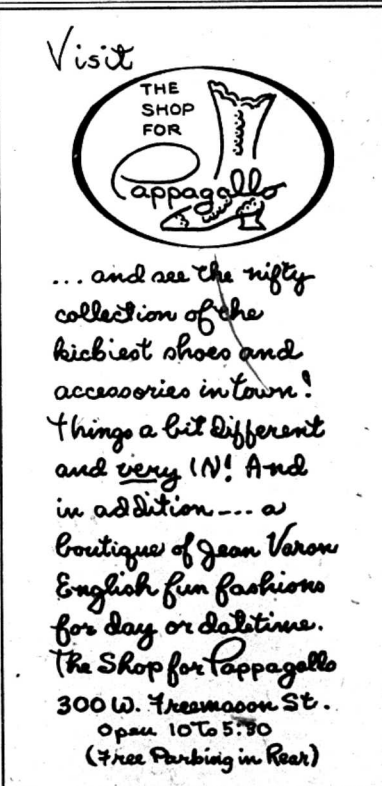 Visit
THE
SHOP
FOR
Pappagallo
... and see the nifty
collection of the
kickiest shoes and
accessories in town!
Things a bit different
and very IN! And
in addition --- a
boutique of Jean Varon
English fun fashions
for day or datetime.
The Shop for Pappagallo
300 W. Freemason St.
Open 10 To 5:30
(Free Parking in Rear)